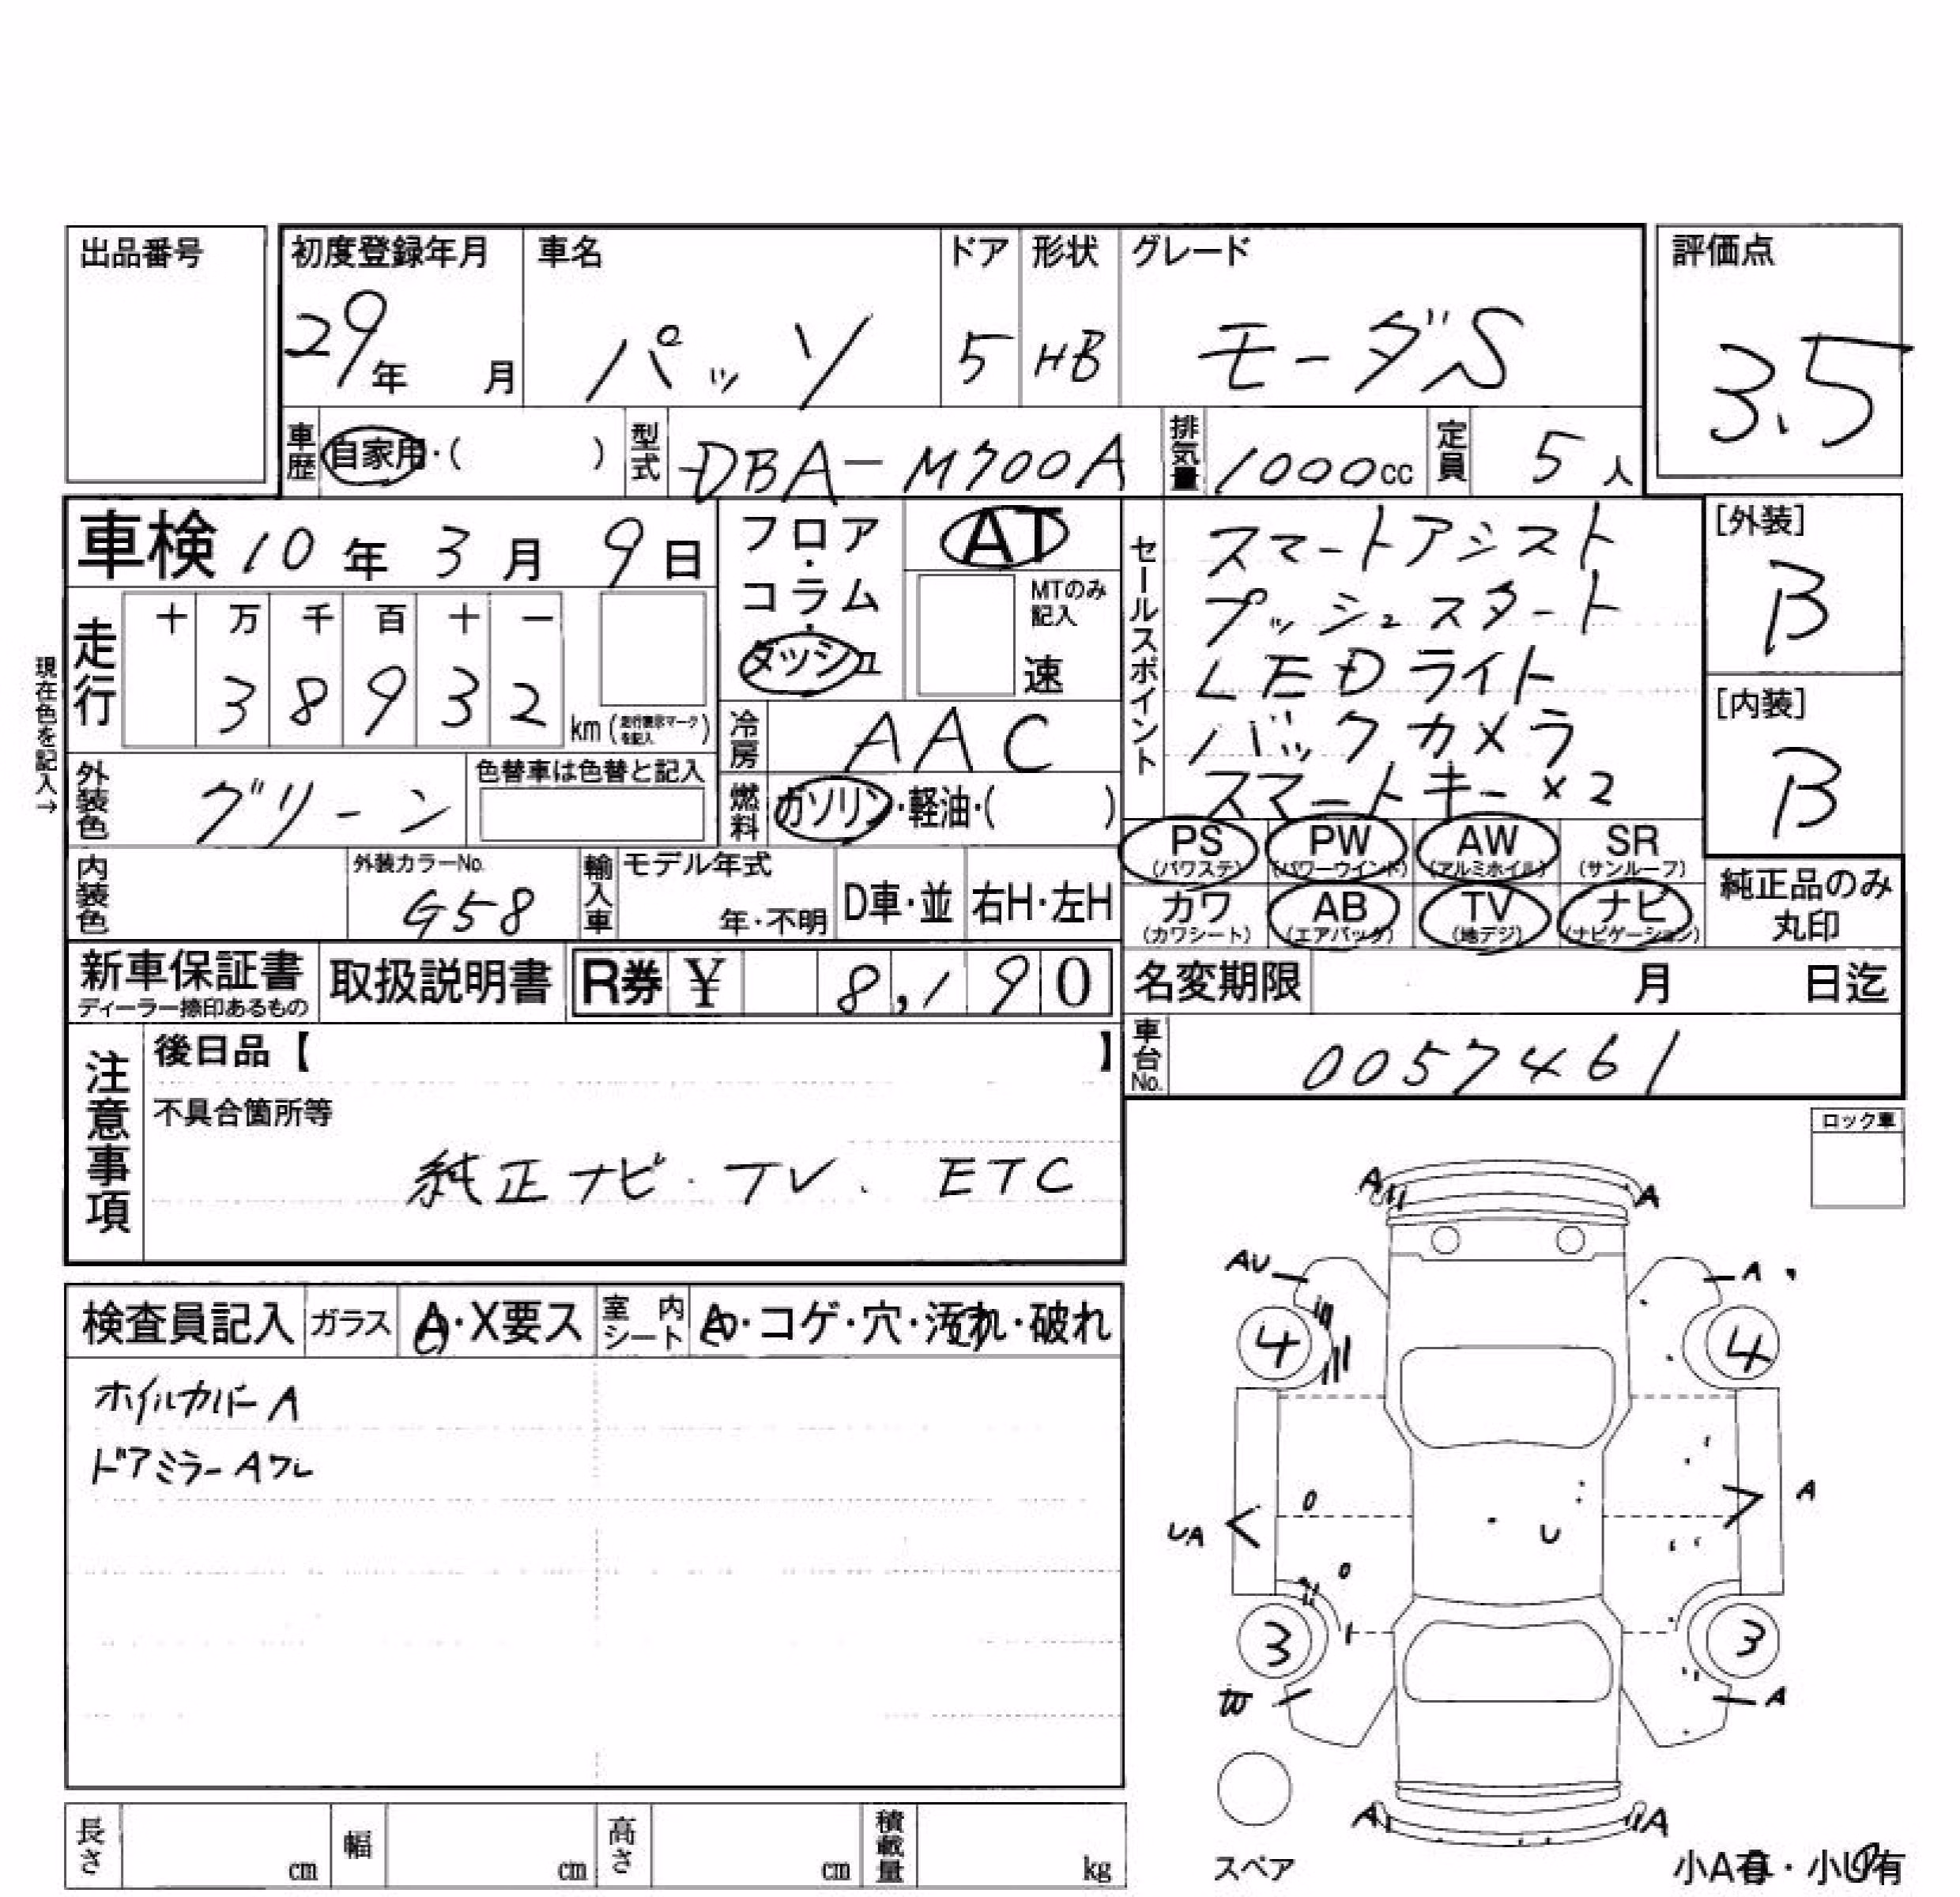 出品番号
初度登録年月 29年 月
車名 パッソ
ドア 5
形状 HB
グレード モーダS
評価点 3.5
車歴 自家用・( )
型式 DBA-M700A
排気量 1000cc
定員 5人
車検 10年3月9日
フロア・コラム・ダッシュ
AT
MTのみ記入
速
走行 十 万 千 百 十 一
3 8 9 3 2 km (走行表示マークを記入)
現在色を記入→
冷房 AAC
外装色 グリーン
色替車は色替と記入
燃料 ガソリン・軽油・( )
内装色
外装カラーNo. G58
輸入車 モデル年式 年・不明
D車・並
右H・左H
セールスポイント
スマートアシスト
プッシュスタート
LEDライト
バックカメラ
スマートキー×2
[外装] B
[内装] B
PS (パワステ) PW (パワーウインド) AW (アルミホイル) SR (サンルーフ)
カワ (カワシート) AB (エアバッグ) TV (地デジ) ナビ (ナビゲーション)
純正品のみ丸印
新車保証書 ディーラー捺印あるもの
取扱説明書
R券 ¥ 8,190
名変期限 月 日迄
車台No. 0057461
注意事項
後日品【 】
不具合箇所等
純正ナビ・TV、ETC
ロック車
検査員記入 ガラス A・X要ス 室内シート A・コゲ・穴・汚れ・破れ
ホイルカバーA
ドアミラーAワレ
A A
AU A
4 4
UA < U > A
3 3
A
A A
スペア
小A有・小U有
長さ cm 幅 cm 高さ cm 積載量 kg